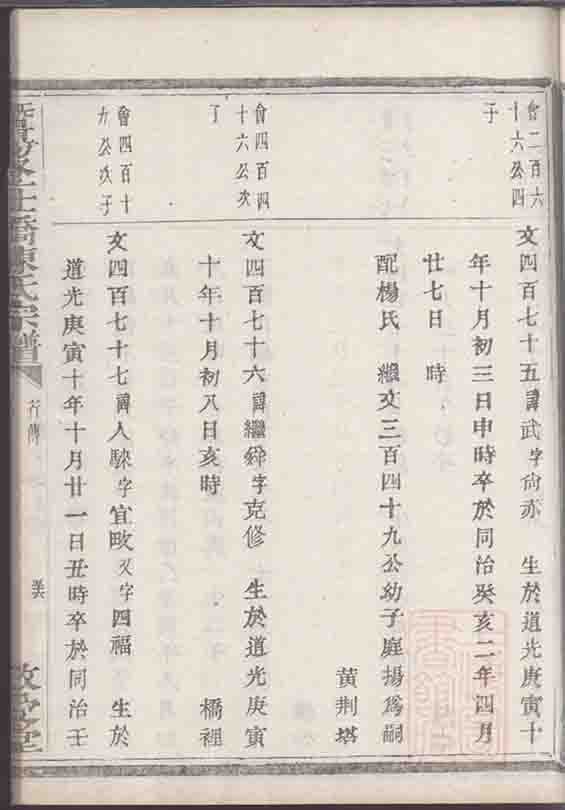 會二百六
十六公四
子
文四百七十五諱武字尙亦 生於道光庚寅十
年十月初三日申時卒於同治癸亥二年四月
廿七日 時
配楊氏 繼文三百四十九公幼子庭揚爲嗣
黄荆塔
會四百四
十六公次
了
文四百七十六諱繼舜字克修 生於道光庚寅
十年十月初八日亥時 橋裡
會四百十
九公次子
文四百七十七諱人騋字宜畮又字四福 生於
道光庚寅十年十月廿一日丑時卒於同治壬
橋陳氏宗譜
行傳